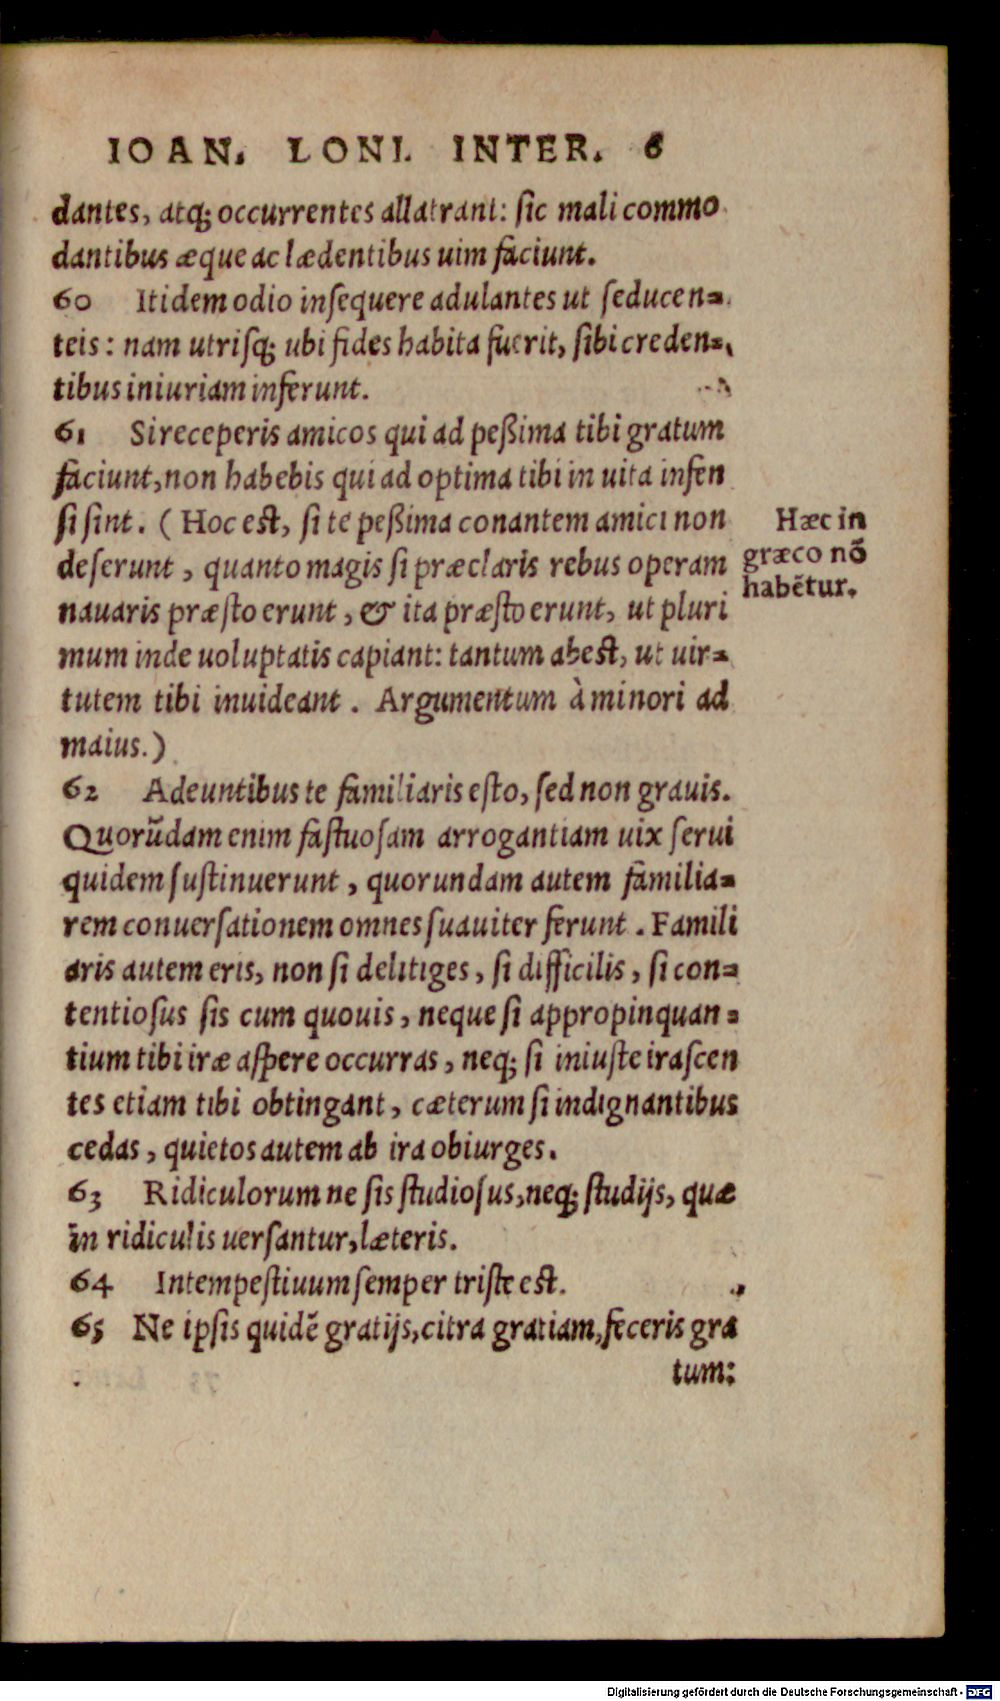 IOAN. LONI. INTER. 6
dantes, atq; occurrentes allatrant: sic mali commo
dantibus æque ac lædentibus uim faciunt.
60 Itidem odio insequere adulantes ut seducen=
teis: nam utrisq; ubi fides habita fuerit, sibi creden=
tibus iniuriam inferunt.
61 Si receperis amicos qui ad peßima tibi gratum
faciunt, non habebis qui ad optima tibi in uita infen
si sint. (Hoc est, si te peßima conantem amici non
deserunt, quanto magis si præclaris rebus operam
nauaris præsto erunt, & ita præsto erunt, ut pluri
mum inde uoluptatis capiant: tantum abest, ut uir=
tutem tibi inuideant. Argumentum à minori ad
maius.)
Hæc in
græco nō
habētur.
62 Adeuntibus te familiaris esto, sed non grauis.
Quorũdam enim fastuosam arrogantiam uix serui
quidem sustinuerunt, quorundam autem familia=
rem conuersationem omnes suauiter ferunt. Famili
aris autem eris, non si delitiges, si difficilis, si con=
tentiosus sis cum quouis, neque si appropinquan=
tium tibi iræ aspere occurras, neq; si iniuste irascen
tes etiam tibi obtingant, cæterum si indignantibus
cedas, quietos autem ab ira obiurges.
63 Ridiculorum ne sis studiosus, neq; studijs, quæ
in ridiculis uersantur, læteris.
64 Intempestiuum semper triste est.
65 Ne ipsis quidē gratijs, citra gratiam, feceris gra
tum:
Digitalisierung gefördert durch die Deutsche Forschungsgemeinschaft - DFG